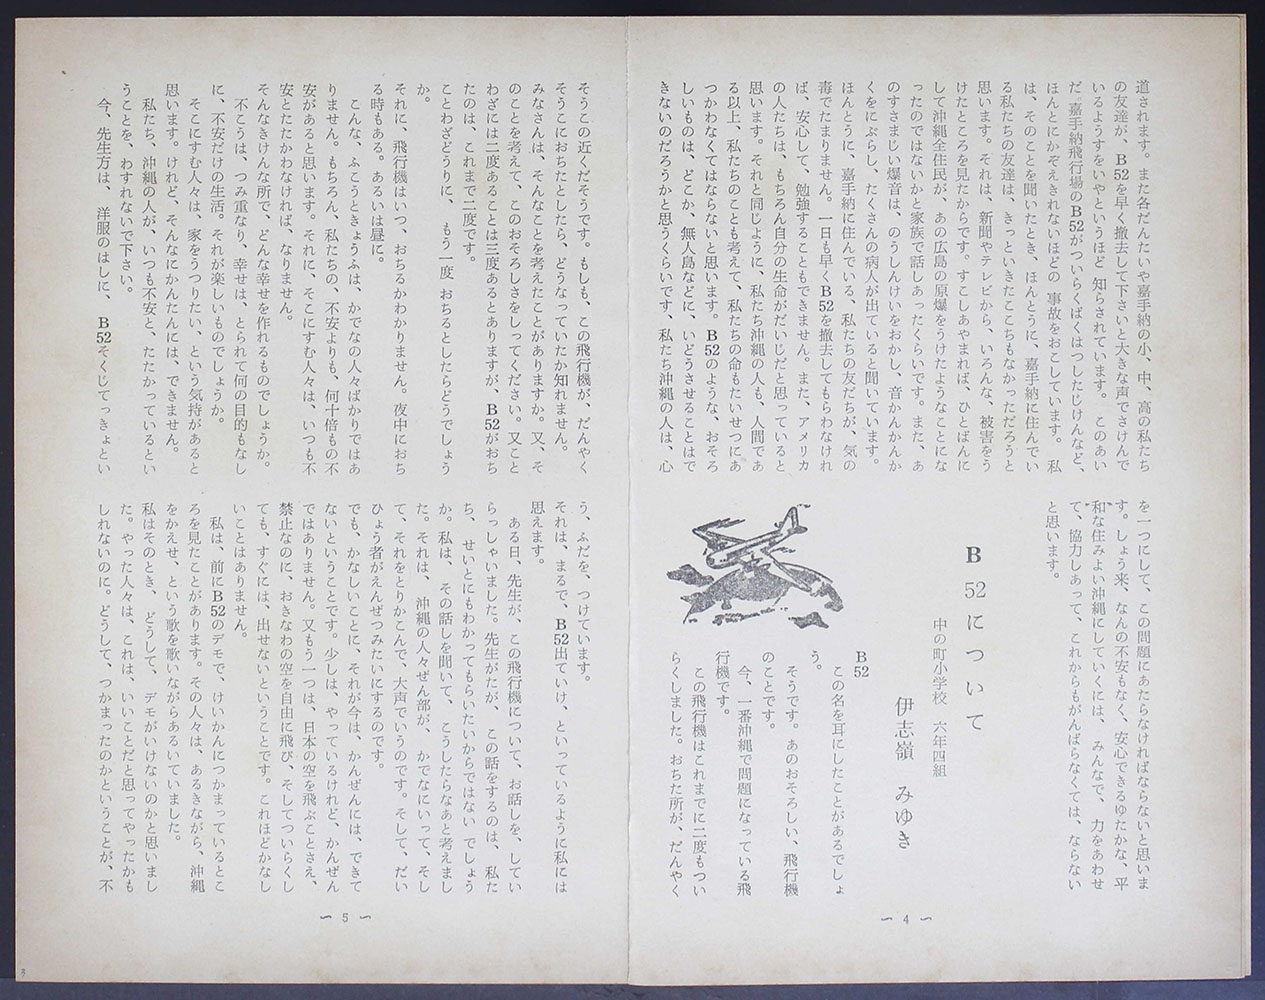 道されます。また各だんたいや嘉手納の小、中、高の私たち
の友達が、B52を早く撤去して下さいと大きな声でさけんで
いるようすをいやというほど 知らされています。 このあい
だ 嘉手納飛行場のB52がついらくばくはつしたじけんなど、
ほんとにかぞえきれないほどの 事故をおこしています。 私
は、そのことを聞いたとき、ほんとうに、嘉手納に住んでい
る私たちの友達は、きっといきたここちもなかっただろうと
思います。それは、新聞やテレビから、いろんな、被害をう
けたところを見たからです。すこしあやまれば、ひとばんに
して沖縄全住民が、あの広島の原爆をうけたようなことにな
ったのではないかと家族で話しあったくらいです。また、あ
のすさまじい爆音は、のうしんけいをおかし、音かんかんか
くをにぶらし、たくさんの病人が出ていると聞いています。
ほんとうに、嘉手納に住んでいる、私たちの友だちが、気の
毒でたまりません。一日も早くB52を撤去してもらわなけれ
ば、安心して、勉強することもできません。また、アメリカ
の人たちは、もちろん自分の生命がだいじだと思っていると
思います。それと同じように、私たち沖縄の人も、人間であ
る以上、私たちのことも考えて、私たちの命もたいせつにあ
つかわなくてはならないと思います。B52のような、おそろ
しいものは、どこか、無人島などに、いどうさせることはで
きないのだろうかと思うくらいです、私たち沖縄の人は、心
を一つにして、この問題にあたらなければならないと思いま
す。しょう来、なんの不安もなく、安心できるゆたかな、平
和な住みよい沖縄にしていくには、みんなで、力をあわせ
て、協力しあって、これからもがんばらなくては、ならない
と思います。
B52について
中の町小学校 六年四組
伊志嶺 みゆき
B52
この名を耳にしたことがあるでしょ
う。
そうです。あのおそろしい、飛行機
のことです。
今、一番沖縄で問題になっている飛
行機です。
この飛行機はこれまでに二度もつい
らくしました。おちた所が、だんやく
〜 4 〜
そうこの近くだそうです。もしも、この飛行機が、だんやく
そうこにおちたとしたら、どうなっていたか知れません。
みなさんは、そんなことを考えたことがありますか。又、そ
のことを考えて、このおそろしさをしってください。又こと
わざには二度あることは三度あるとありますが、B52がおち
たのは、これまで二度です。
ことわざどうりに、もう一度 おちるとしたらどうでしょう
か。
それに、飛行機はいつ、おちるかわかりません。夜中におち
る時もある。あるいは昼に。
こんな、ふこうときょうふは、かでなの人々ばかりではあ
りません。もちろん、私たちの、不安よりも、何十倍もの不
安があると思います。それに、そこにすむ人々は、いつも不
安とたたかわなければ、なりません。
そんなきけんな所で、どんな幸せを作れるものでしょうか。
不こうは、つみ重なり、幸せは、とられて何の目的もなし
に、不安だけの生活。それが楽しいものでしょうか。
そこにすむ人々は、家をうつりたい、という気持があると
思います。けれど、そんなにかんたんには、できません。
私たち、沖縄の人が、いつも不安と、たたかっているとい
うことを、わすれないで下さい。
今、先生方は、洋服のはしに、B52そくじてっきょとい
う、ふだを、つけています。
それは、まるで、B52出ていけ、といっているように私には
思えます。
ある日、先生が、この飛行機について、お話しを、してい
らっしゃいました。先生がたが、この話をするのは、私た
ち、せいとにもわかってもらいたいからではない でしょう
か。私は、その話しを聞いて、こうしたらなあと考えまし
た。それは、沖縄の人々ぜん部が、かでなにいって、そし
て、それをとりかこんで、大声でいうのです。そして、だい
ひょう者がえんぜつみたいにするのです。
でも、かなしいことに、それが今は、かんぜんには、できて
ないということです。少しは、やっているけれど、かんぜん
ではありません。又もう一つは、日本の空を飛ぶことさえ、
禁止なのに、おきなわの空を自由に飛び、そしてついらくし
ても、すぐには、出せないということです。これほどかなし
いことはありません。
私は、前にB52のデモで、けいかんにつかまっているとこ
ろを見たことがあります。その人々は、あるきながら、沖縄
をかえせ、という歌を歌いながらあるいていました。
私はそのとき、どうして、デモがいけないのかと思いまし
た。やった人々は、これは、いいことだと思ってやったかも
しれないのに。どうして、つかまったのかということが、不
〜 5 〜